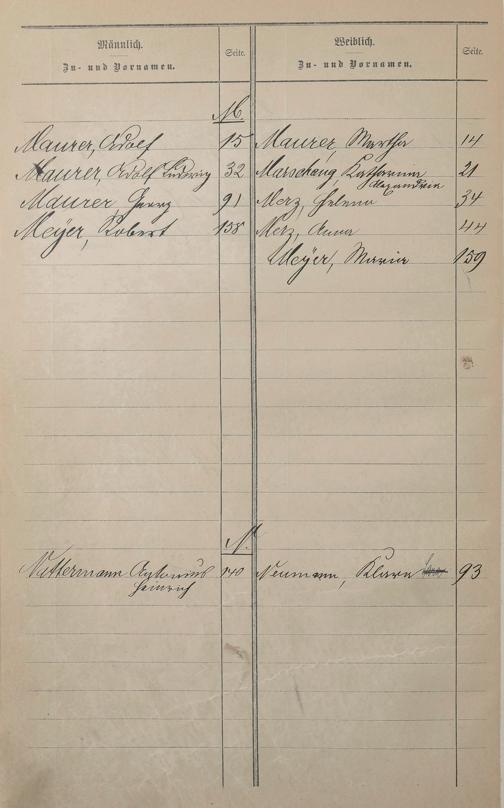 Männlich. Seite. Weiblich. Seite.
Zu- und Vornamen. Zu- und Vornamen.
M.
Maurer, Adolf 15 Maurer, Martha 14
Maurer, Adolf Ludwig 32 Marschang, Katharina 21
Alexandrin
Maurer Georg 91 Merz, Helena 34
Meÿer, Robert 158 Merz, Anna 44
Meÿer, Maria 159
N.
Nattermann Antonius 140 Neumann, Klara 93
Heinrich